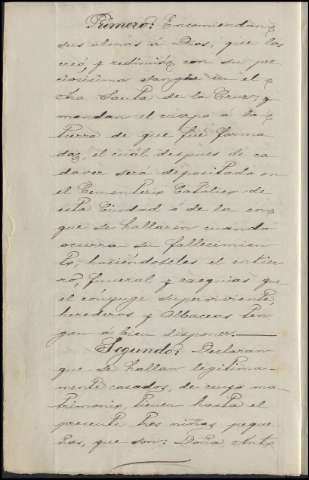 Primero: Encomiendan
sus almas á Dios, que las
creó, y redimió, con su pre
ciosísima sangre en el
Santa de la Cruz, y
mandan el cuerpo á la
tierra de que fué forma
do, el cual despues de ca
daver será depositado en
el Cementerio Católico de
esta Ciudad ó de la en
que se hallaren cuando
ocurra su fallecimien
to, haciéndoseles el entier
ro, funeral, y exequias que
el conyuge superviviente,
herederos y Albaceas ten
gan á bien disponer.
Segundo: Declaran
que se hallan legitima
mente casados, de cuyo ma
trimonio, tienen hasta el
presente tres niñas peque
ñas, que son: Doña Anto